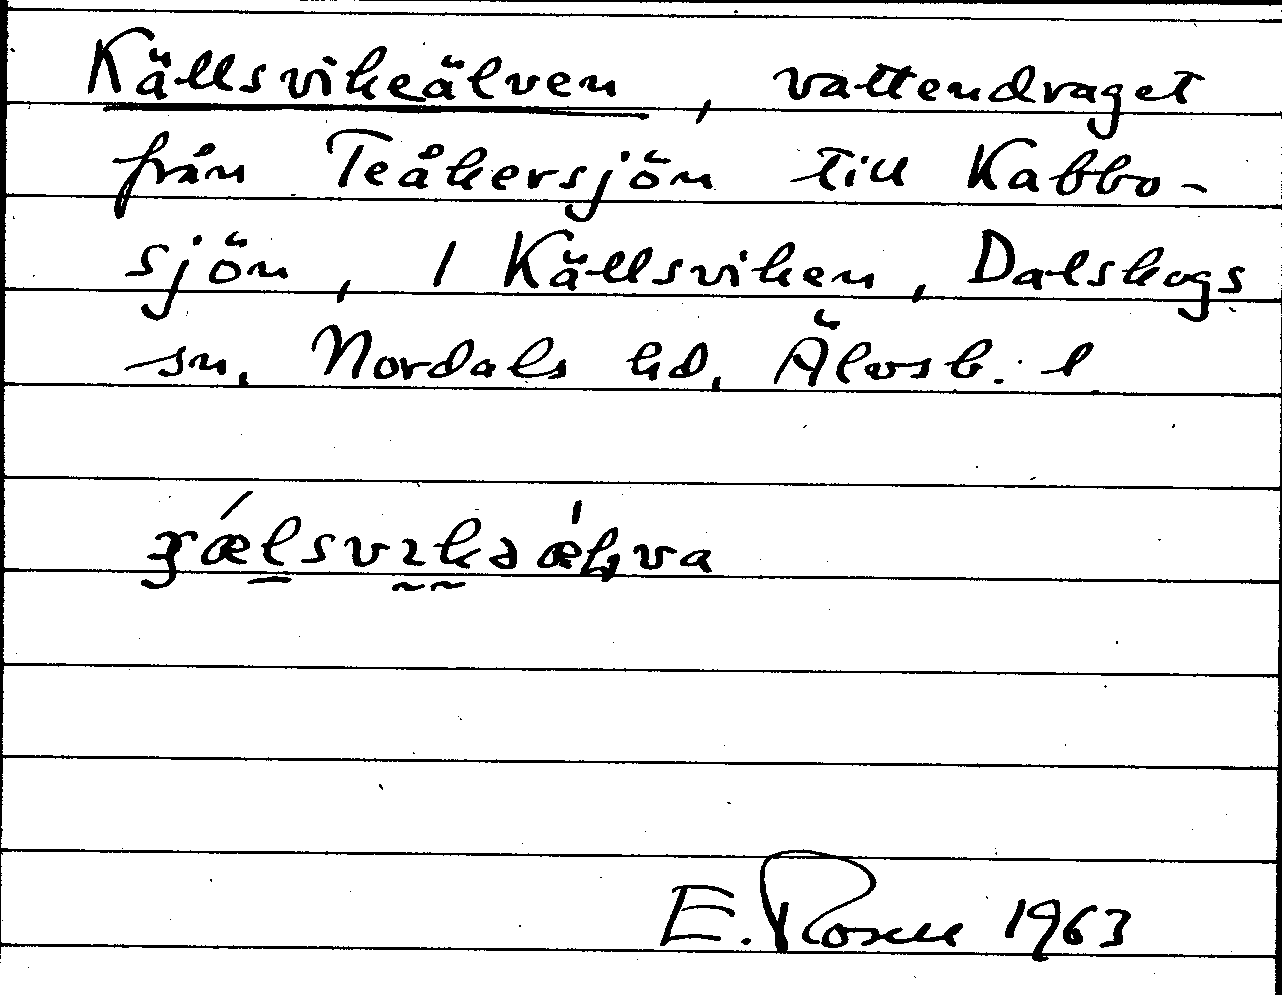 Källsvikeälven, vattendraget
från Teåkersjön till Kabbo-
sjön, 1 Källsviken, Dalskogs
sn. Nordals hd. Älvsb. l
E. Rosell 1963